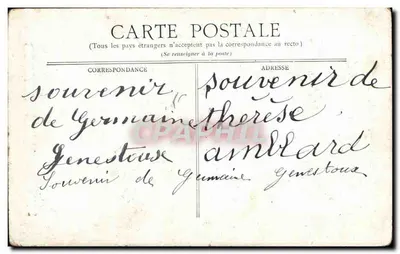 CARTE POSTALE
(Tous les pays étrangers n'acceptent pas la correspondance au recto)
(Se renseigner à la poste)
CORRESPONDANCE
souvenir
de Germaine
Genestoux
ADRESSE
souvenir de
thérèse
amblard
Souvenir de Germaine Genestoux